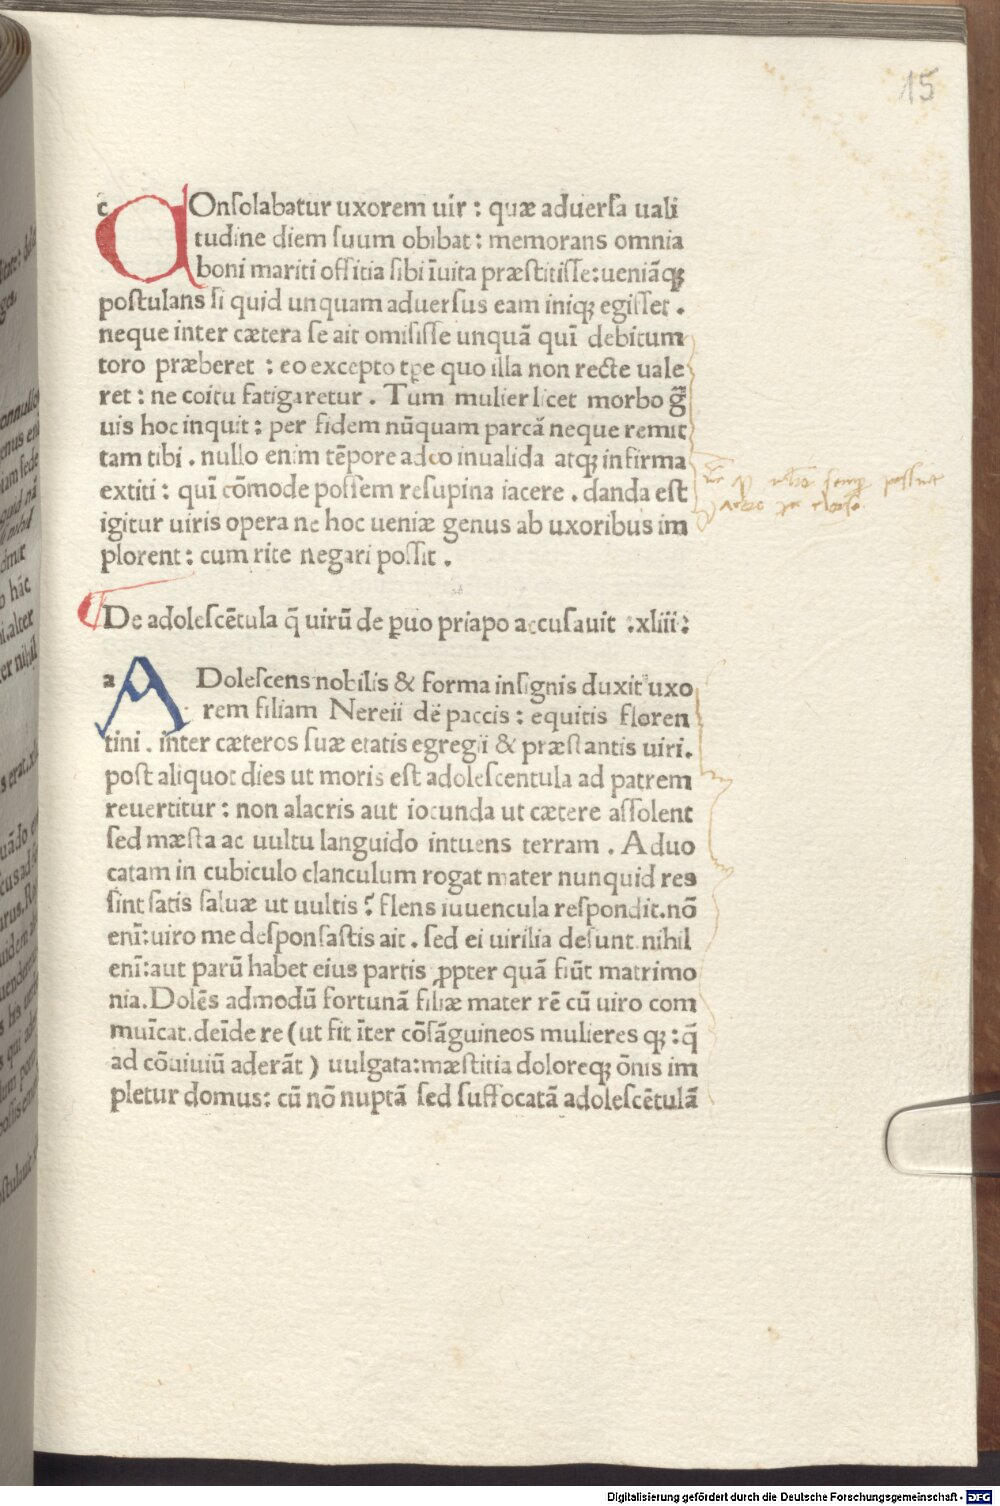 15
c COnſolabatur uxorem uir : quæ aduerſa uali
tudine diem ſuum obibat : memorans omnia
boni mariti offitia ſibi īuita præſtitiſſe: ueniāqꝫ
poſtulans ſi quid unquam aduerſus eam iniqꝫ egiſſet .
neque inter cætera ſe ait omiſiſſe unquā quī debitum
toro præberet : eo excepto tꝑe quo illa non recte uale
ret : ne coitu fatigaretur . Tum mulier licet morbo g̃
uis hoc inquit : per fidem nūquam parcā neque remit
tam tibi . nullo enim tēpore adeo inualida atqꝫ infirma
extiti : quī cōmode poſſem reſupina iacere . danda eſt
igitur uiris opera ne hoc ueniæ genus ab uxoribus im
plorent : cum rite negari poſſit .
De adoleſcētula q̄ uirū de ꝑuo priapo accuſauit :xliii:
a ADoleſcens nobilis & forma inſignis duxit uxo
rem filiam Nereii dē paccis : equitis floren
tini . inter cæteros ſuæ etatis egregii & præſtantis uiri.
poſt aliquot dies ut moris eſt adoleſcentula ad patrem
reuertitur : non alacris aut iocunda ut cætere aſſolent
ſed mæſta ac uultu languido intuens terram . Aduo
catam in cubiculo clanculum rogat mater nunquid res
ſint ſatis ſaluæ ut uultis ? flens iuuencula reſpondit.nō
enī:uiro me deſponſaſtis ait . ſed ei uirilia deſunt nihil
enī:aut parū habet eius partis ꝓpter quā fiūt matrimo
nia.Dolēs admodū fortunā filiæ mater rē cū uiro com
muīcat.deīde re (ut fit īter cōſāguineos mulieres qꝫ : q̄
ad cōuiuiū aderāt ) uulgata:mæſtitia doloreqꝫ ōnis im
pletur domus: cū nō nuptā ſed ſuffocatā adoleſcētulā
Digitalisierung gefördert durch die Deutsche Forschungsgemeinschaft - DFG